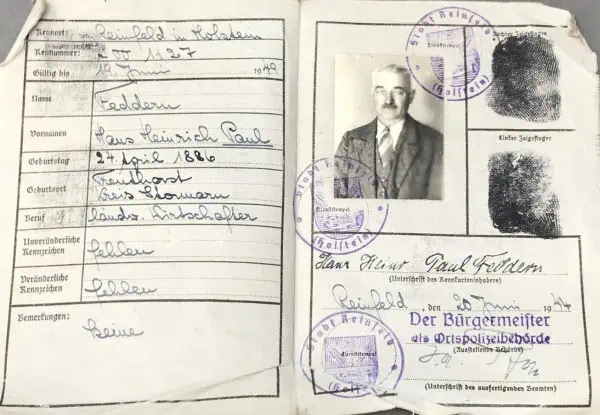 Kennort: Reinfeld in Holstein
Kennummer: 1127
Gültig bis 19. Juni 1949
Name Feddern
Vornamen Hans Heinrich Paul
Geburtstag 24. April 1886
Geburtsort Trenthorst
Kreis Stormarn
Beruf landw. Wirtschafter
Unveränderliche Kennzeichen fehlen
Veränderliche Kennzeichen fehlen
Bemerkungen: Keine
Stadt Reinfeld
Dienststempel
(Holstein)
Rechter Zeigefinger
Linker Zeigefinger
Stadt Reinfeld
Dienststempel
(Holstein)
Hans Heinr Paul Feddern
(Unterschrift des Kennkarteninhabers)
Reinfeld, den 20. Juni 1944
Der Bürgermeister
als Ortspolizeibehörde
(Ausstellende Behörde)
Stadt Reinfeld
Dienststempel
(Unterschrift des ausfertigenden Beamten)